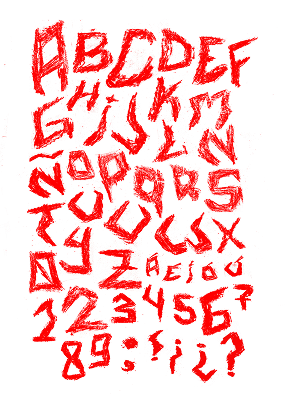 ABCDEF
GHIJKLMN
ÑOPQRS
TUVWX
YZÁÉÍÓÚ
01234567
89:;!¡¿?